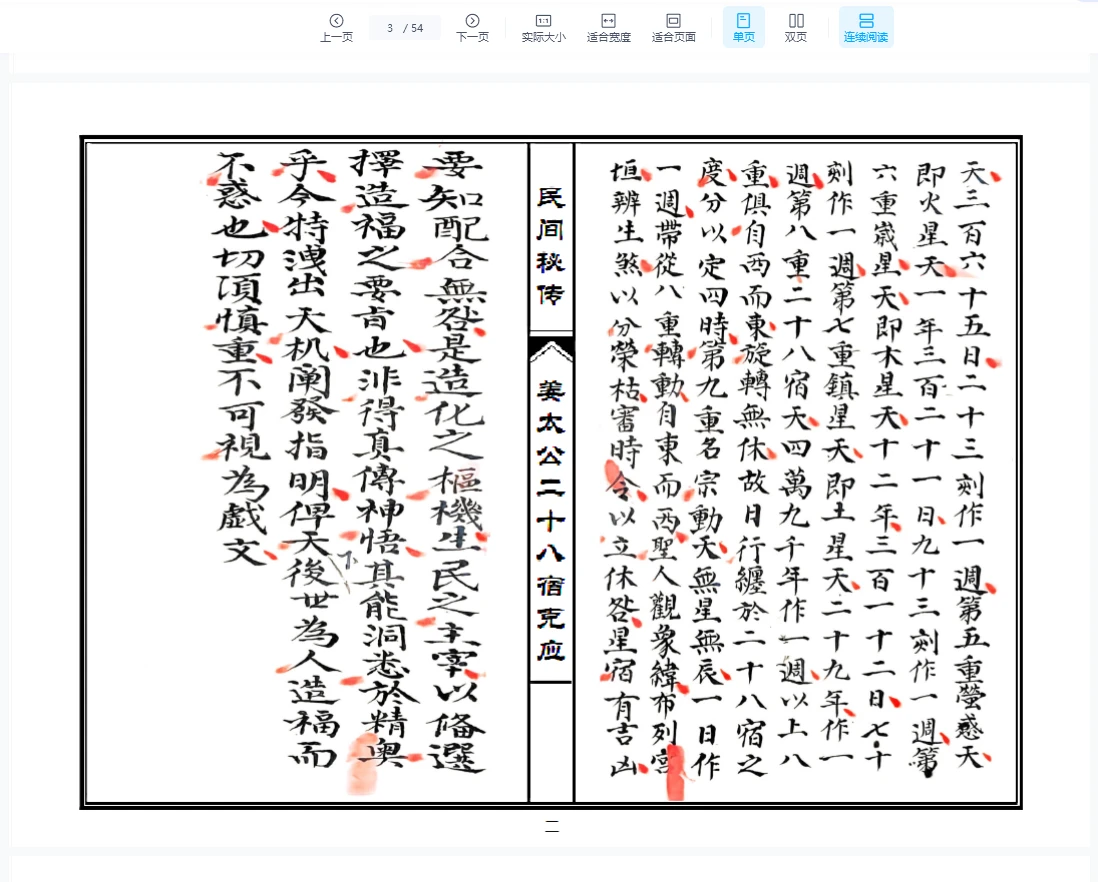 上一页
3 / 54
下一页
实际大小
适合宽度
适合页面
单页
双页
连续阅读
天三百六十五日二十三刻作一週第五重螢惑天
即火星天一年三百二十一日九十三刻作一週第
六重歲星天即木星天十二年三百一十二日七十
刻作一週第七重鎮星天即土星天二十九年作一
週第八重二十八宿天四萬九千年作一週以上八
重俱自西而東旋轉無休故日行纏於二十八宿之
度分以定四時第九重名宗動天無星無辰一日作
一週帶從八重轉動自東而西聖人觀象緯布列宮
垣辨生煞以分榮枯審時令以立休咎星宿有吉凶
民间秘传
姜太公二十八宿克应
要知配合無咎是造化之樞機生民之主宰以備選
擇造福之要肯也非得真傳神悟其能洞悉於精奧
下
乎今特洩出天机阐發指明俾天後世為人造福而
不惑也切須慎重不可視為戲文
二